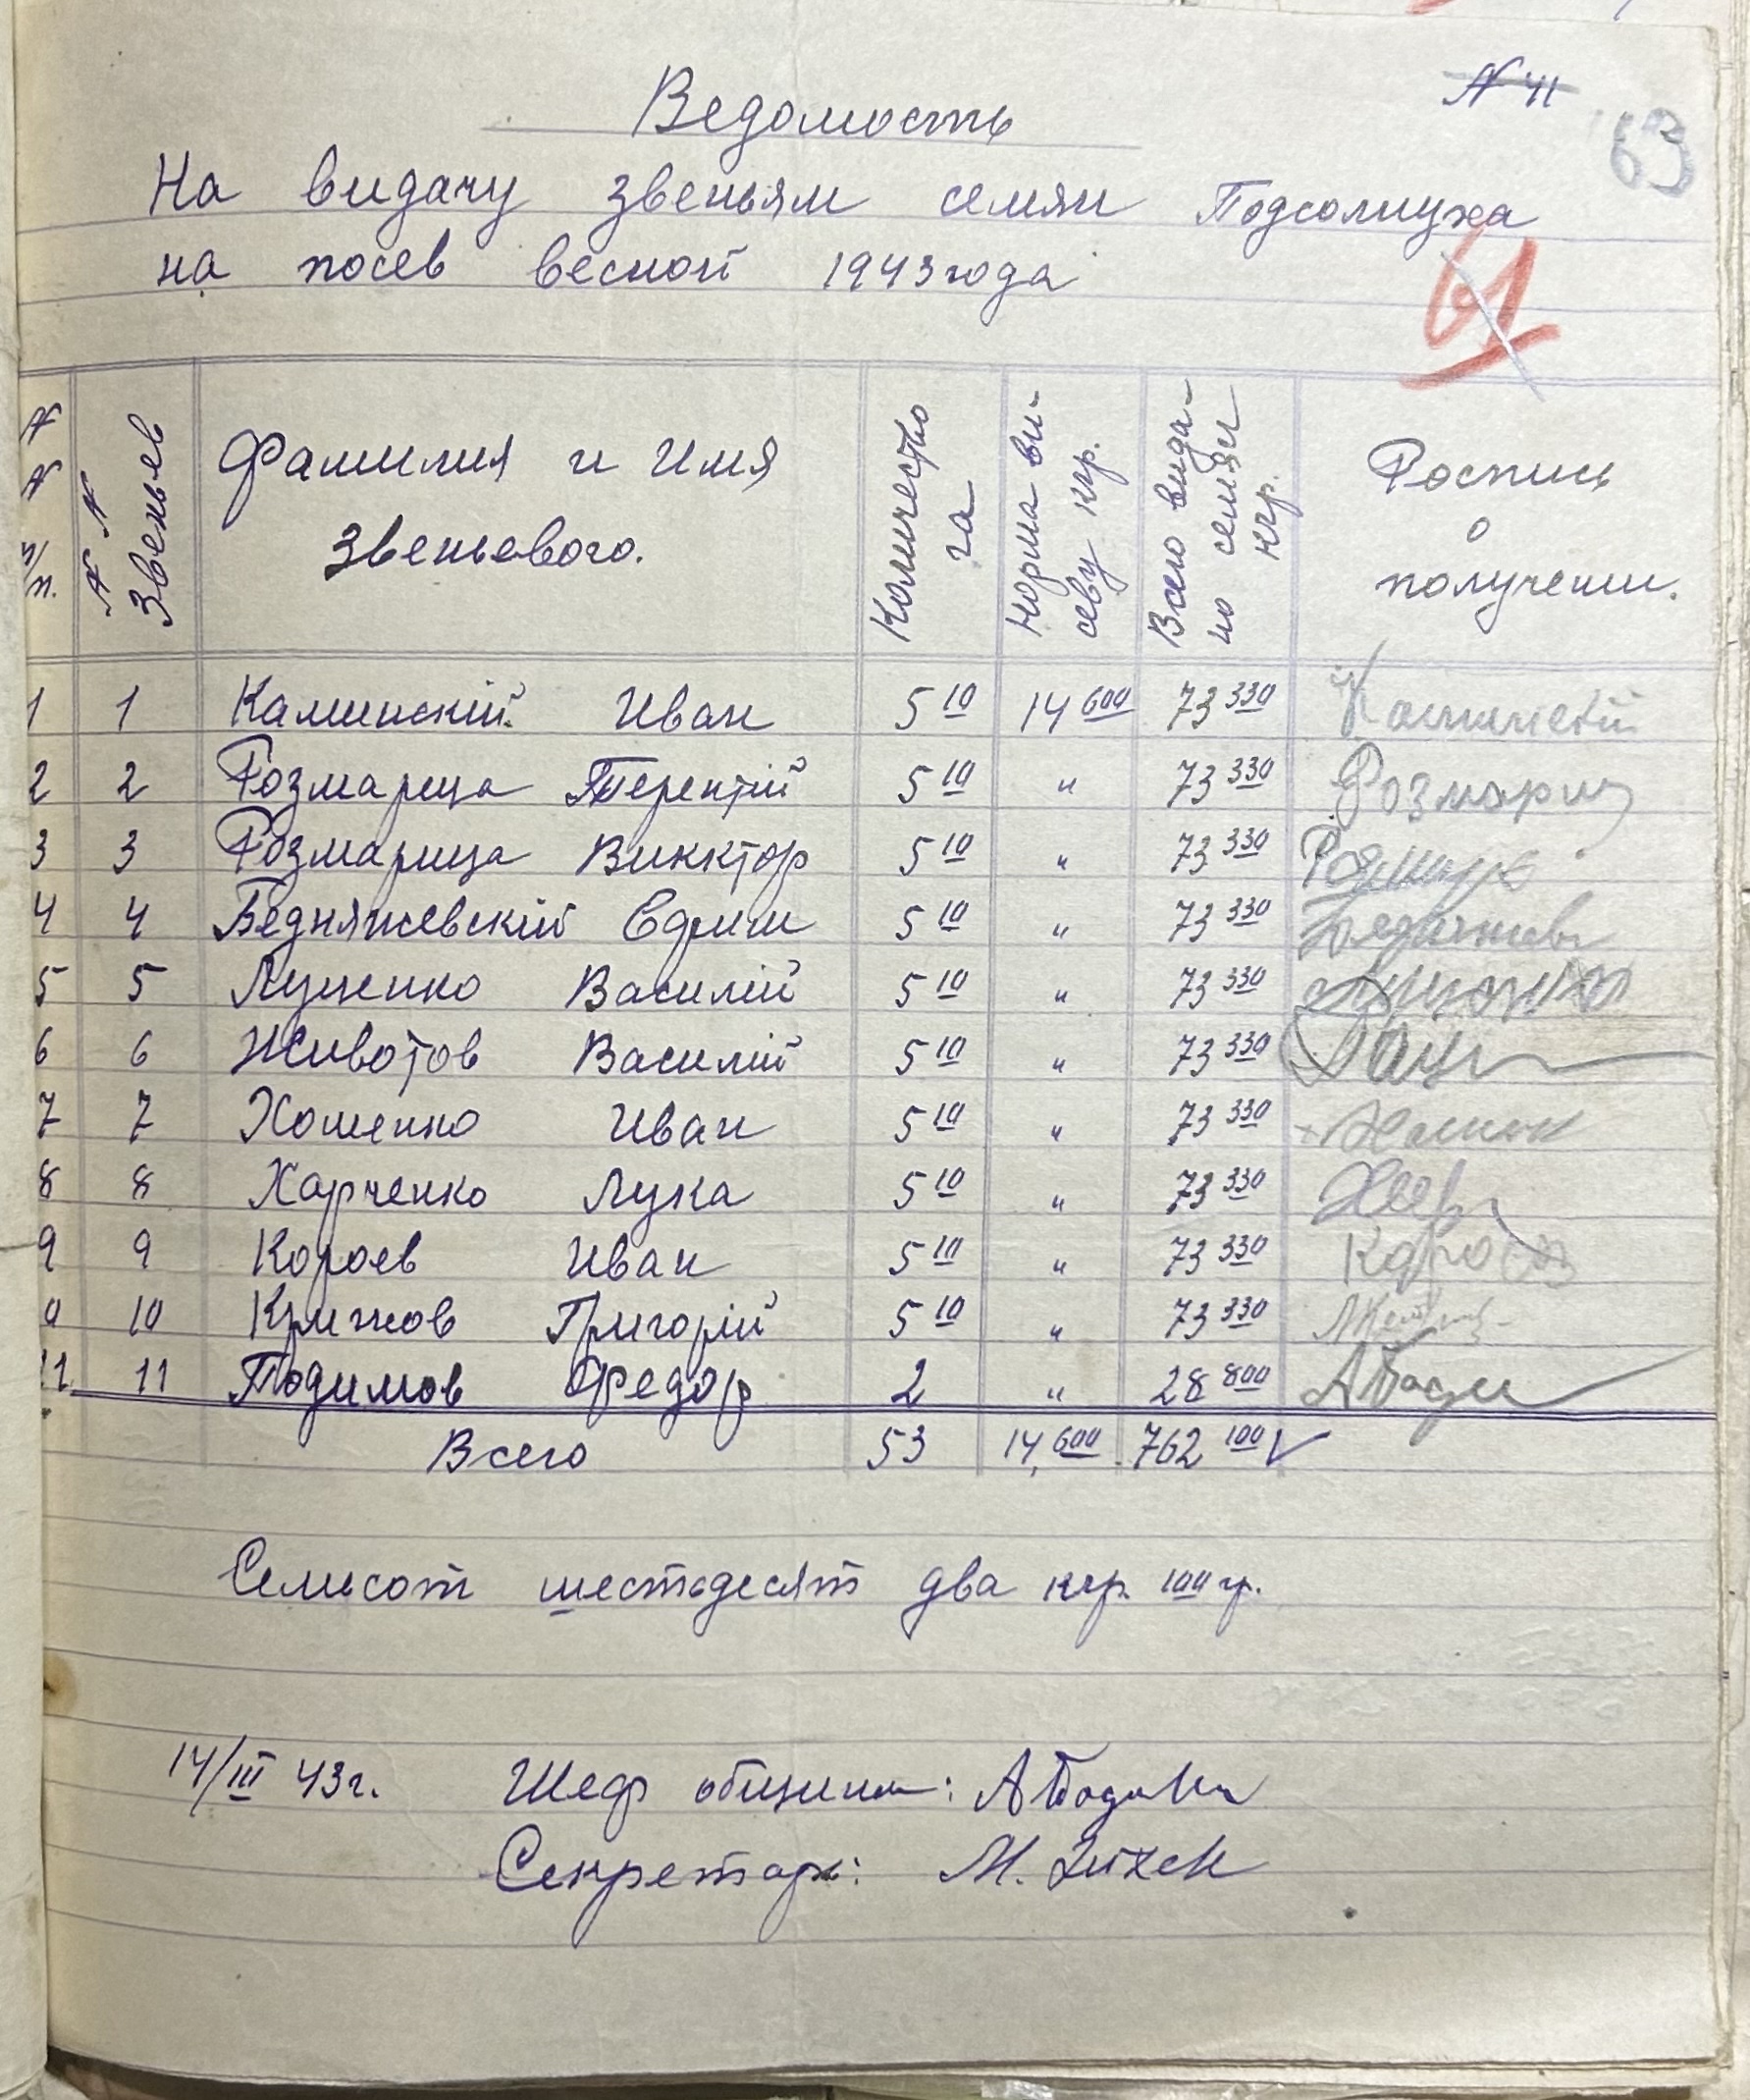 N 41
63
Ведомость
На видачу звеньям семян Подсолнуха
на посев весной 1943 года
61
N N п/п. N N Звеньев Фамилия и Имя Звеньевого. Количество га Норма ви-севу кгр. Всего вида-но семян кгр. Роспись о получении.
1 1 Каминскій Иван 5 10 14 600 73 330 Каминскій
2 2 Розмарица Терентій 5 10 " 73 330 Розмариц
3 3 Розмарица Викктор 5 10 " 73 330
4 4 Бедняжевскій Ефим 5 10 " 73 330
5 5 Луценко Василій 5 10 " 73 330
6 6 Животов Василій 5 10 " 73 330
7 7 Хоменко Иван 5 10 " 73 330
8 8 Харченко Лука 5 10 " 73 330
9 9 Короев Иван 5 10 " 73 330
10 Крижов Григорій 5 10 " 73 330
11 11 Подимов Федор 2 " 28 800
Всего 53 14,600 762 100 V
Семьсот шестьдесят два кгр. 100 гр.
14/III 43 г. Шеф общини:
Секретарь: М.